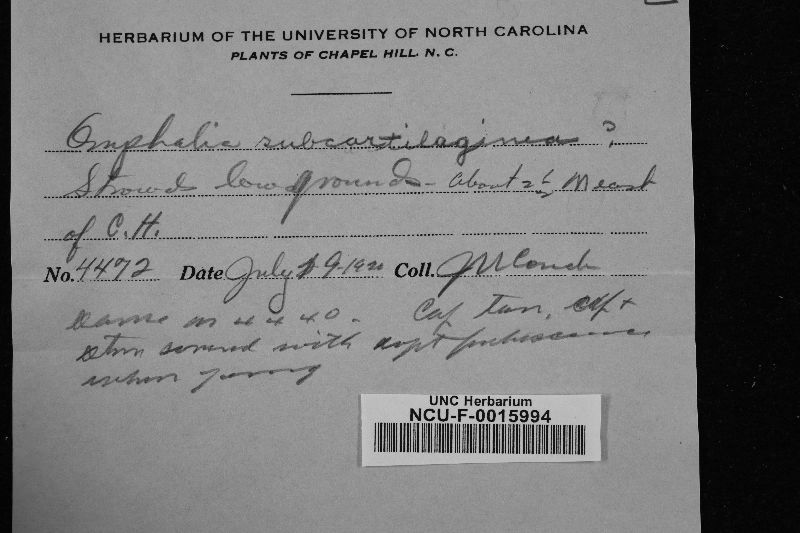 HERBARIUM OF THE UNIVERSITY OF NORTH CAROLINA
PLANTS OF CHAPEL HILL, N. C.
Omphalia subcartilaginea ?
Strowds low grounds - About 2 1/2 M east
of C.H.
No. 4472 Date July 9-1920 Coll. J N Couch
Same as 4440. Cap tan, cap +
stem covered with soft pubescence
when young
UNC Herbarium
NCU-F-0015994